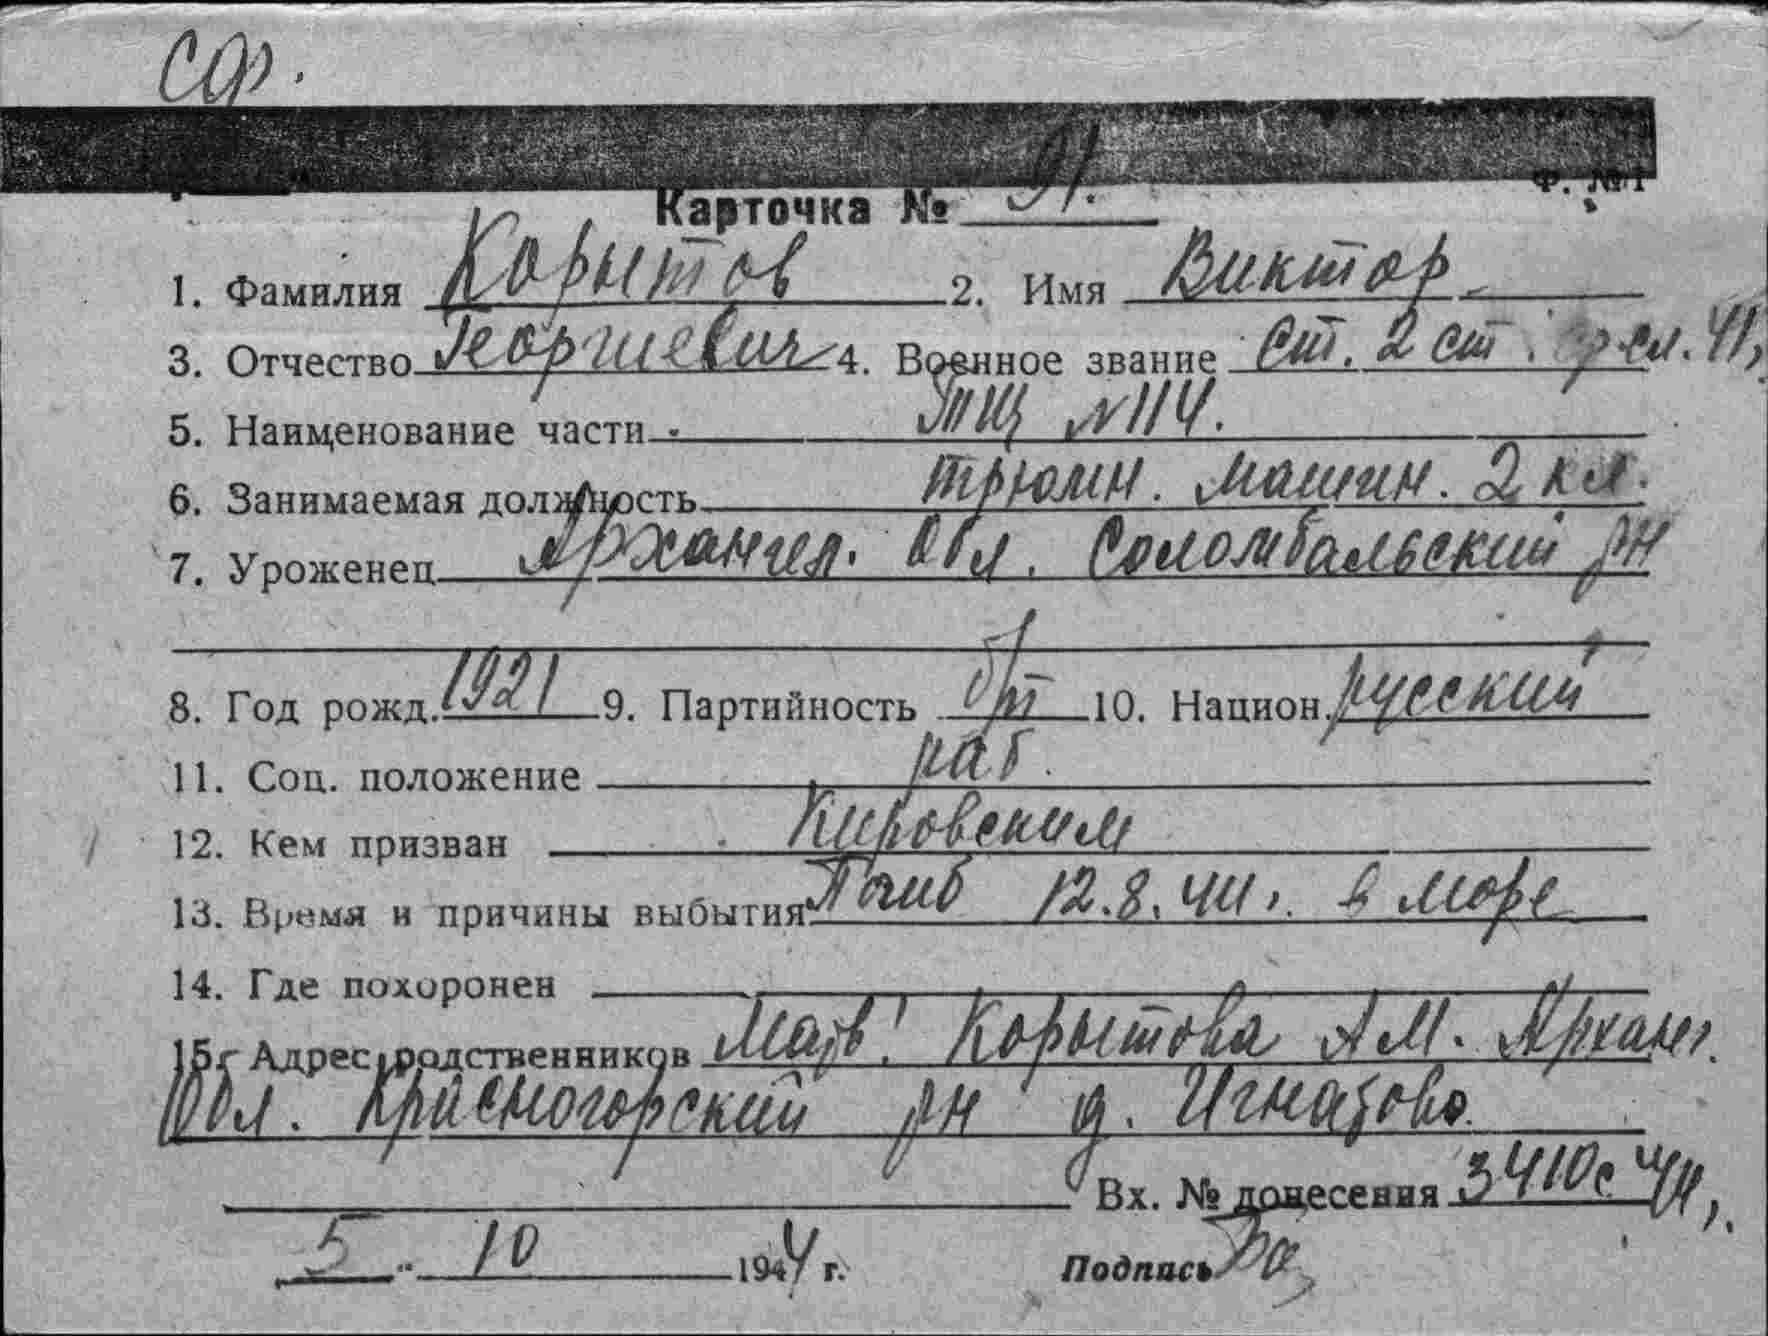 СФ.
Ф. №1
Карточка № 91.
1. Фамилия Корытов 2. Имя Виктор
3. Отчество Георгиевич 4. Военное звание ст. 2 ст. сл. 41,
5. Наименование части ТЩ №114.
6. Занимаемая должность трюмн. машин. 2 кл.
7. Уроженец Архангел. обл. Соломбальский рн
8. Год рожд. 1921 9. Партийность б/п 10. Национ. русский
11. Соц. положение раб.
12. Кем призван Кировским
13. Время и причины выбытия Погиб 12.8.44г. в море
14. Где похоронен
15. Адрес родственников Мать: Корытова А М. Арханг.
Обл. Красногорский рн д. Игнатово.
Вх. № донесения 3410с 44г.
5 10 1944 г. Подпись